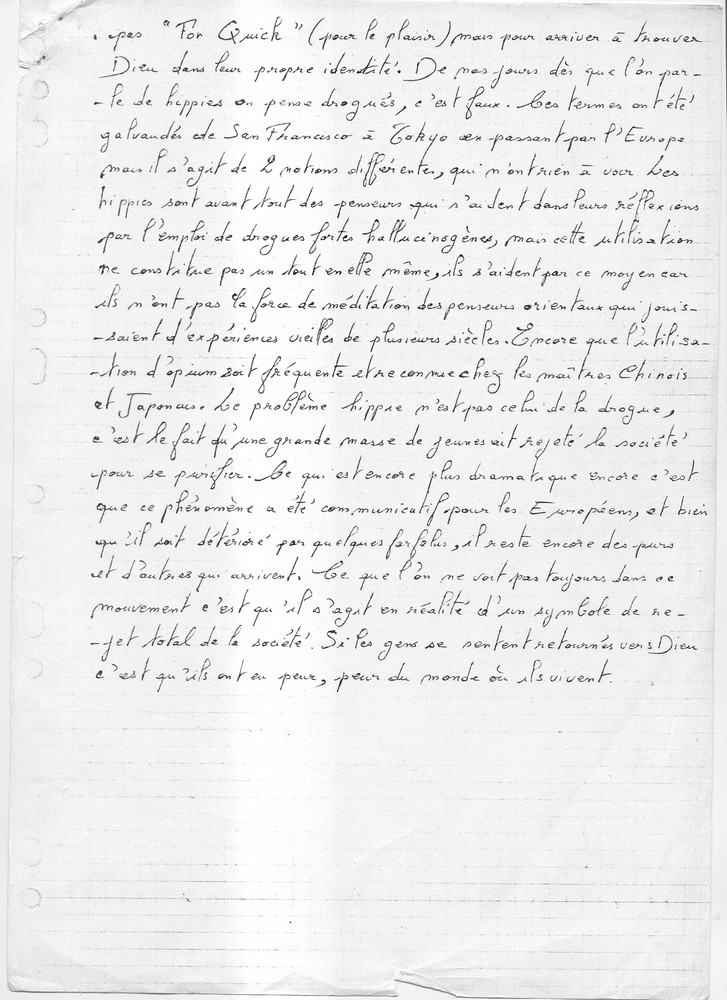 . pas "For Quick" (pour le plaisir) mais pour arriver à trouver
Dieu dans leur propre identité. De nos jours dès que l'on par-
-le de hippies on pense drogués, c'est faux. Ces termes ont été
galvaudés de San Francisco à Tokyo en passant par l'Europe
mais il s'agit de 2 notions différentes, qui n'ont rien à voir Les
hippies sont avant tout des penseurs qui s'aident dans leurs réflexions
par l'emploi de drogues fortes hallucinogènes, mais cette utilisation
ne constitue pas un tout en elle même, ils s'aident par ce moyen car
ils n'ont pas la force de méditation des penseurs orientaux qui jouis-
-saient d'expériences vieilles de plusieurs siècles. Encore que l'utilisa-
-tion d'opium soit fréquente et reconnue chez les maîtres Chinois
et Japonais. Le problème hippie n'est pas celui de la drogue,
c'est le fait qu'une grande masse de jeunes ait rejeté la société
pour se purifier. Ce qui est encore plus dramatique encore c'est
que ce phénomène a été communicatif pour les Européens, et bien
qu'il soit détérioré par quelques farfelus, il reste encore des purs
et d'autres qui arrivent. Ce que l'on ne voit pas toujours dans ce
mouvement c'est qu'il s'agit en réalité d'un symbole de re-
-jet total de la société. Si les gens se sentent retournés vers Dieu
c'est qu'ils ont eu peur, peur du monde où ils vivent.